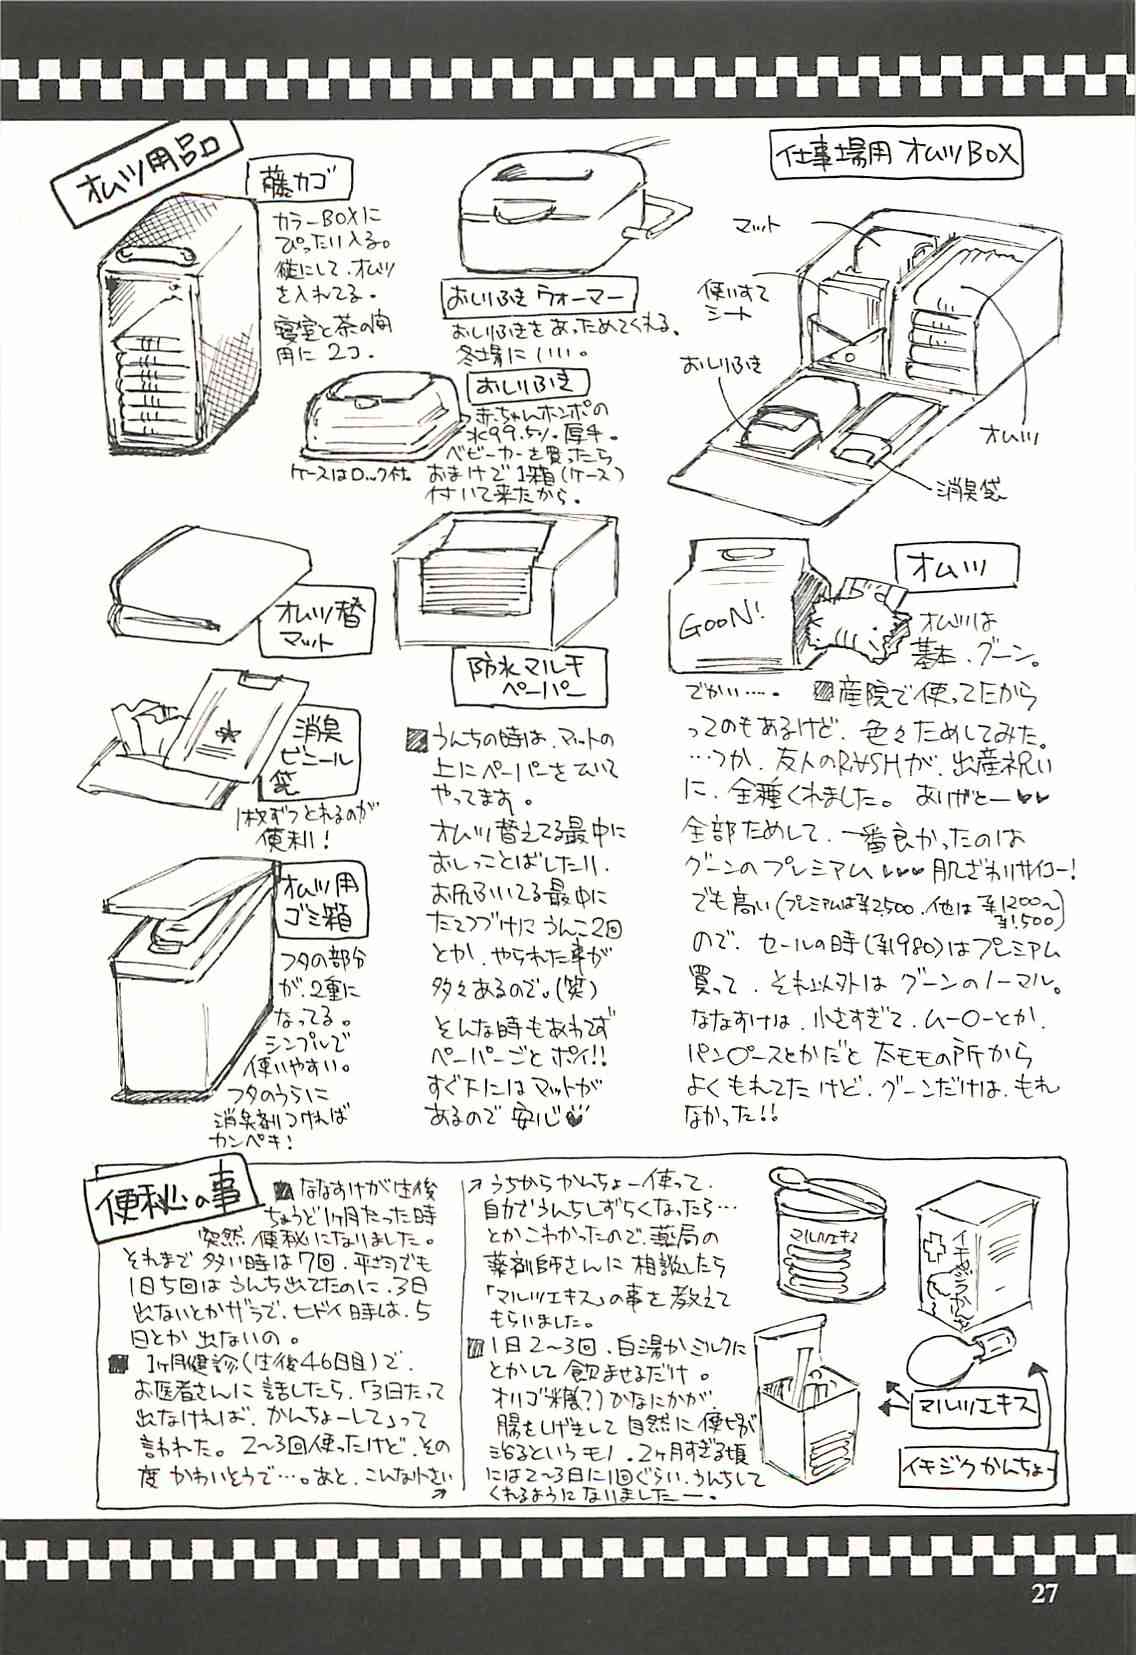 オムツ用品
藤カゴ
カラーBOXに
ぴったり入る。
縦にして、オムツ
を入れてる。
寝室と茶の間
用に2コ.
おしりふきウォーマー
おしりふきをあっためてくれる.
冬場にいい。
おしりふき
赤ちゃんホンポの
水99.5%.厚手.
ベビーカーを買ったら
おまけで1箱(ケース)
付いて来たから.
ケースはロック付.
仕事場用オムツBOX
マット
使いすて
シート
おしりふき
オムツ
消臭袋
オムツ替
マット
防水マルチ
ペーパー
消臭
ビニール
袋
1枚ずつとれるのが
便利!
オムツ用
ゴミ箱
フタの部分
が、2重に
なってる。
シンプルで
使いやすい。
フタのうらに
消臭剤つければ
カンペキ!
うんちの時は、マットの
上にペーパーをひいて
やってます。
オムツ替えてる最中に
おしっことばしたり、
お尻ふいてる最中に
たてつづけにうんこ2回
とか、やられた事が
多々あるので。(笑)
そんな時もあわてず
ペーパーごとポイ!!
すぐ下にはマットが
あるので安心
オムツ
GOON!
オムツは
基本、グーン。
でかい‥‥. 産院で使ってたから
ってのもあるけど、色々ためしてみた。
…つか、友人のRASHが、出産祝い
に、全種くれました。ありがとー♥♥
全部ためして、一番良かったのは
グーンのプレミアム♥♥♥肌ざわりサイコー!
でも高い(プレミアムは¥2500.他は¥1200〜
¥1,500)
ので、セールの時(¥1980)はプレミアム
買って、それ以外はグーンのノーマル。
ななすけは、小さすぎて、ムー〇ーとか、
パン〇ースとかだと太モモの所から
よくもれてたけど、グーンだけは、もれ
なかった!!
便秘の事
ななすけが生後
ちょうど1ヶ月たった時
突然便秘になりました。
それまで多い時は7回、平均でも
1日5回はうんち出てたのに、3日
出ないとかザラで、ヒドイ時は、5
日とか出ないの。
1ヶ月健診(生後46日目)で、
お医者さんに話したら、「3日たって
出なければ、かんちょーして」って
言われた。2〜3回使ったけど、その
度かわいそうで…。あと、こんな小さい
うちからかんちょー使って、
自力でうんちしずらくなったら…
とかこわかったので、薬局の
薬剤師さんに相談したら
「マルツエキス」の事を教えて
もらいました。
1日2〜3回、白湯かミルクに
とかして飲ませるだけ。
オリゴ糖(?)かなにかが、
腸をしげきして自然に便ぴが
治るというモノ。2ヶ月すぎる頃
には2〜3日に1回ぐらい、うんちして
くれるようになりましたー。
マルツエキス
イチジクかんちょ
マルツエキス
イチジクかんちょー
27